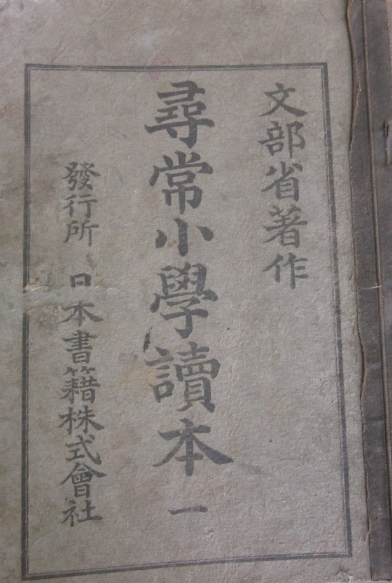 文部省著作
尋常小學讀本 一
發行所 日本書籍株式會社